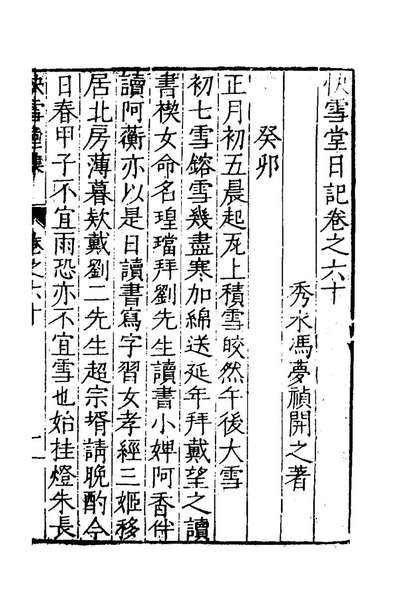 快雪堂日記卷之六十
秀水馮夢禎開之著
癸卯
正月初五晨起瓦上積雪皎然午後大雪
初七雪鎔雪幾盡寒加綿送延年拜戴望之讀
書楔女命名瑝璫拜劉先生讀書小婢阿香伴
讀阿蘅亦以是日讀書寫字習女孝經三姬移
居北房薄暮欵戴劉二先生超宗壻請晚酌今
日春甲子不宜雨恐亦不宜雪也始挂燈朱長
快雪堂集
卷之六十
一